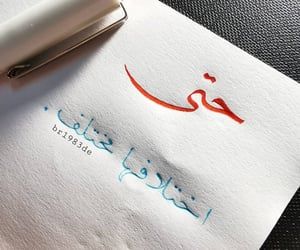 حتى
اختلافها مختلف .
br1983de